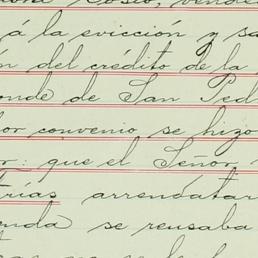 á la evicción y sa
ón del crédito de la
onde de San Ped
or convenio se hizo
or: que el Señor,
trías arrendatar
nda se reusaba